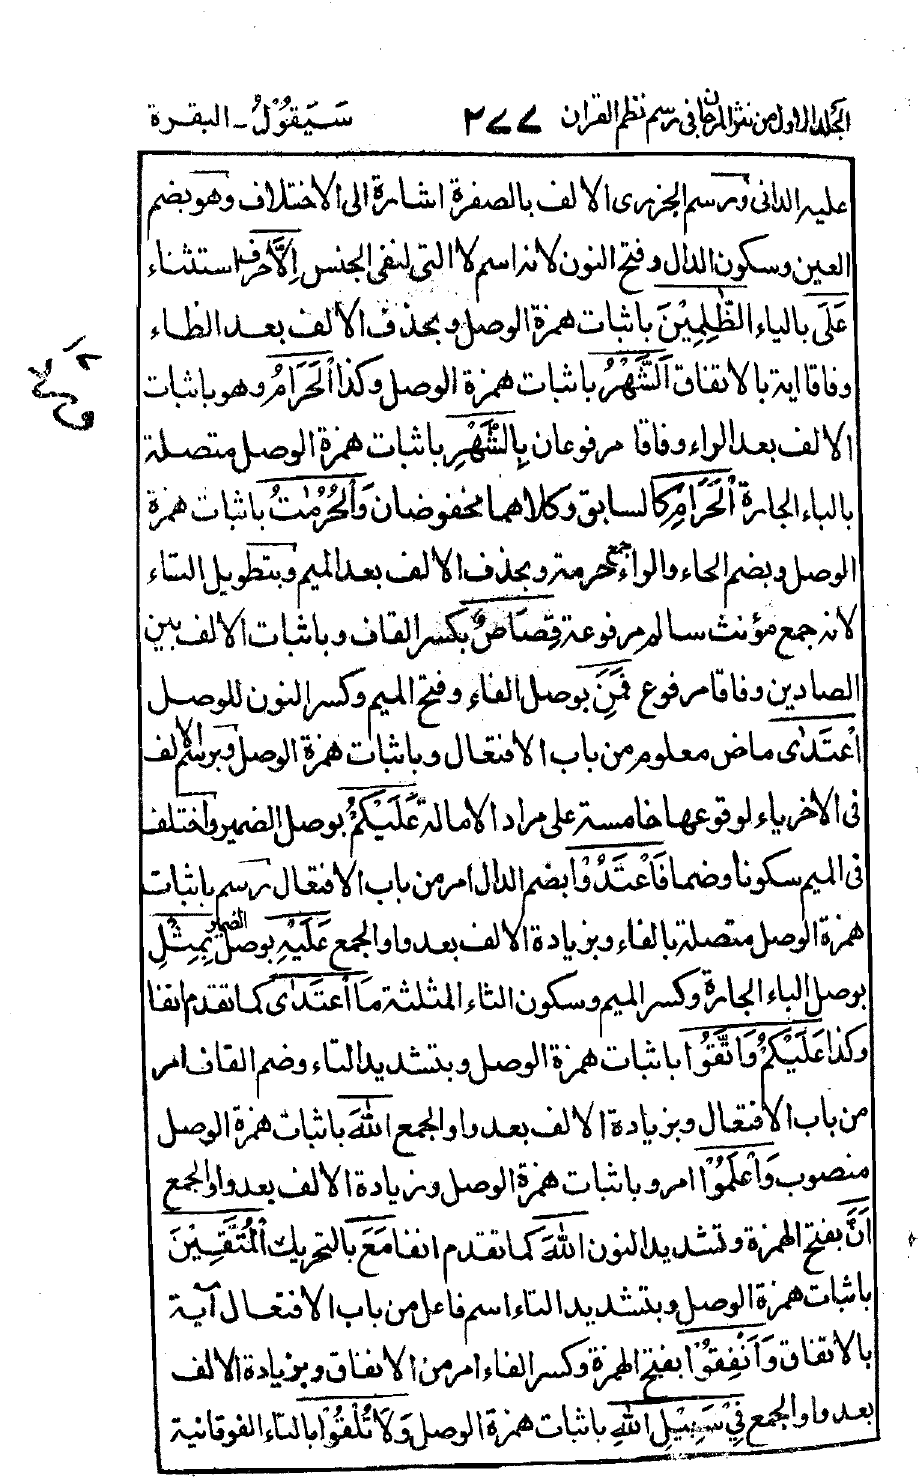 الجلد الاول من نثر المرجان فی رسم نظم القران ٢٧٧ سَيَقُوْلُ ـ البقرة
عليه الدانی ورسم الجزری الالف بالصفرة اشارة الی الاختلاف وهو بضم
العين وسكون الدال وفتح النون لانه اسم لا التی لنفی الجنس اِلَّا حرف استثناء
عَلَى بالياء الظّٰلِمِيْنَ باثبات همزة الوصل وبحذف الالف بعد الظاء
وفاقا اية بالاتفاق اَلشَّهْرُ باثبات همزة الوصل وكذا اْلحَرَامُ وهو باثبات
الالف بعد الراء وفاقا مرفوعان بِالشَّهْرِ باثبات همزة الوصل متصلة
بالباء الجارة اْلحَرَامِ كالسابق وكلاهما مخفوضان وَاْلحُرُمٰتُ باثبات همزة
الوصل وبضم الحاء والراء جمع حرمة وبحذف الالف بعد الميم وبتطويل التاء
لانه جمع مؤنث سالم مرفوعة قِصَاصٌ بكسر القاف وباثبات الالف بين
الصادين وفاقا مرفوع فَمَنِ بوصل الفاء وفتح الميم وكسر النون للوصل
اعْتَدٰى ماض معلوم من باب الافتعال وباثبات همزة الوصل وبرسم الالف
فی الاخر ياء لوقوعها خامسة علی مراد الامالة عَلَيْكُمْ بوصل الضمير واختلف
فی الميم سكونا وضما فَاعْتَدُوْا بضم الدال امر من باب الافتعال رسم باثبات
همزة الوصل متصلة بالفاء وبزيادة الالف بعد واو الجمع عَلَيْهِ بوصل الضمير بِمِثْلِ
بوصل الباء الجارة وكسر الميم وسكون الثاء المثلثة مَا اعْتَدٰى كما تقدم انفا
وكذا عَلَيْكُمْ وَاتَّقُوْا باثبات همزة الوصل وبتشديد التاء وضم القاف امر
من باب الافتعال وبزيادة الالف بعد واو الجمع اللّٰهَ باثبات همزة الوصل
منصوب وَاعْلَمُوْا امر وباثبات همزة الوصل وبزيادة الالف بعد واو الجمع
اَنَّ بفتح الهمزة وتشديد النون اللّٰهَ كما تقدم انفا مَعَ بالتحريك اْلمُتَّقِيْنَ
باثبات همزة الوصل وبتشديد التاء اسم فاعل من باب الافتعال آية
بالاتفاق وَاَنْفِقُوْا بفتح الهمزة وكسر الفاء امر من الانفاق وبزيادة الالف
بعد واو الجمع فِیْ سَبِيْلِ اللّٰهِ باثبات همزة الوصل وَلَا تُلْقُوْا بالتاء الفوقانية